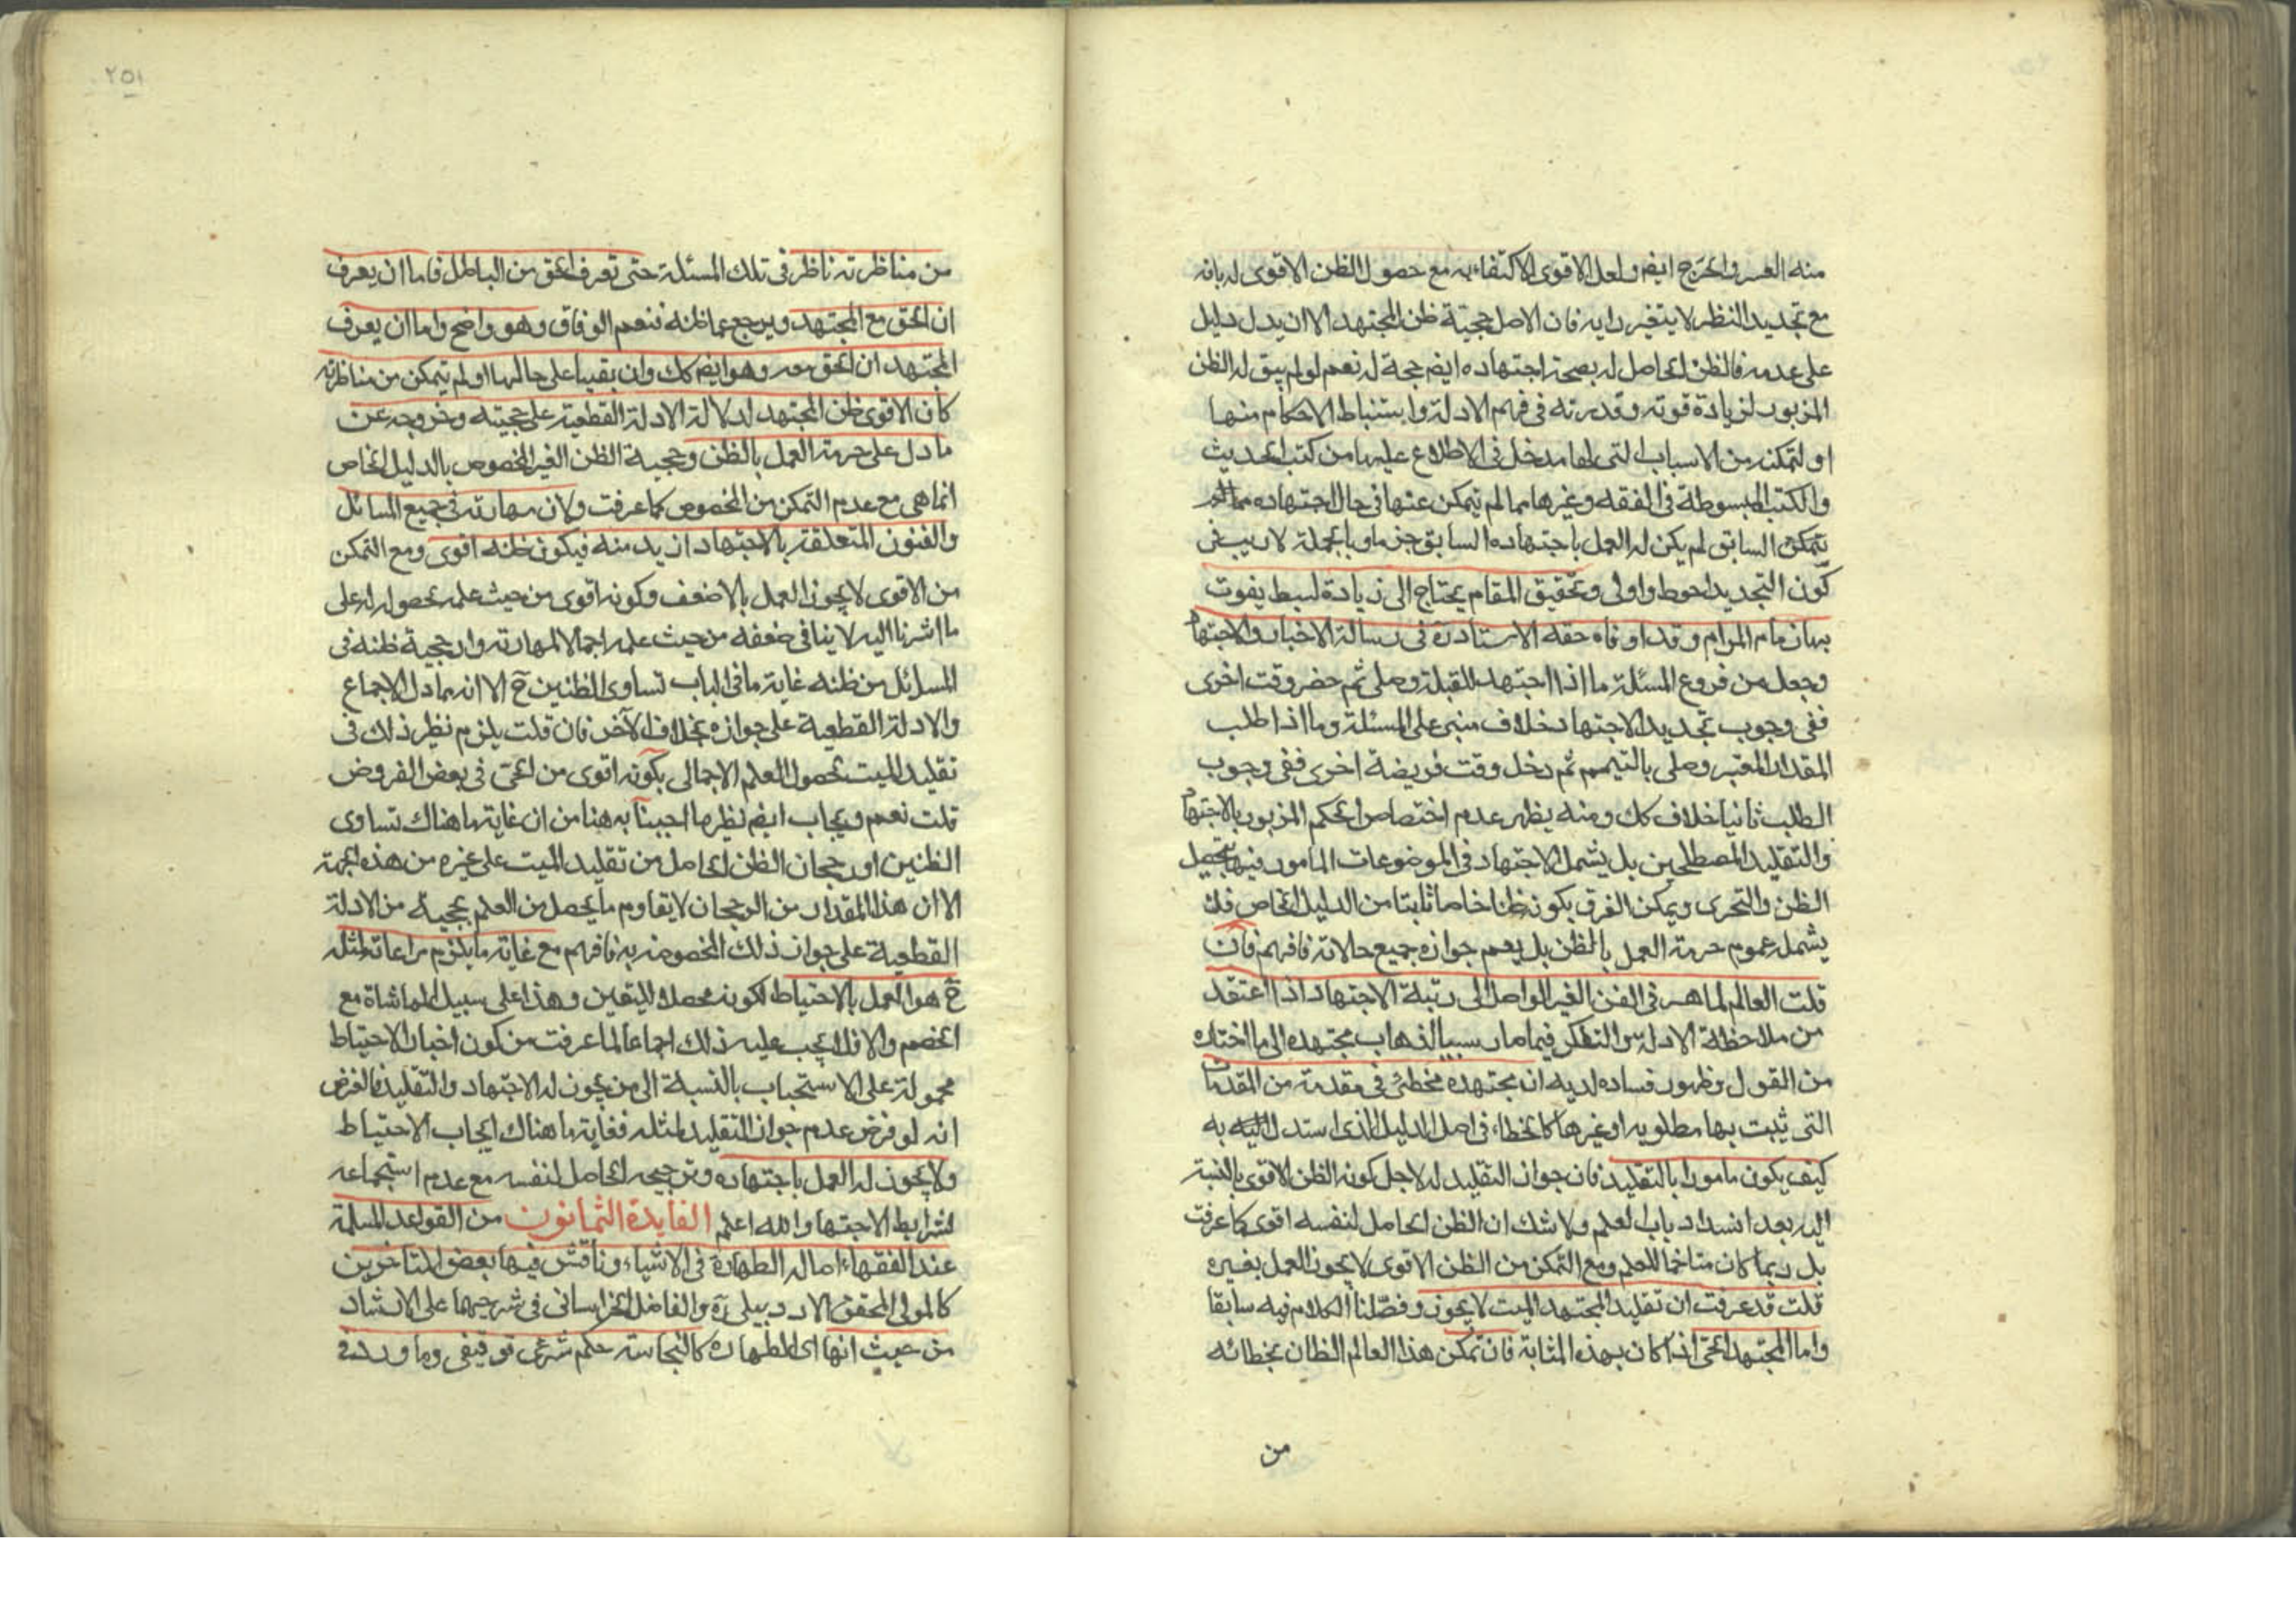 منه العسر والحرج ايضم ولعل الاقوى الاكتفاء به مع حصول الظن الاقوى له بانه
مع تجديد النظر لا يتغير رايه فان الاصل حجية ظن المجتهد الا ان يدل دليل
على عدمه فالظن الحاصل له بصحة اجتهاده ايضم حجة له نعم لو لم يبق له الظن
المزبور لزيادة قوته وقدرته في فهم الادلة واستنباط الاحكام منها
او لتمكنه من الاسباب التى لها مدخل فى الاطلاع عليها من كتب الحديث
والكتب المبسوطة فى الفقه وغيرها مما لم يتمكن عنها فى حال اجتهاده
السابق لم يكن له العمل باجتهاده السابق جزما وبالجملة لا ريب فى
كون التجديد احوط واولى وتحقيق المقام يحتاج الى زيادة لبسط يفوت
بيان ما م المرام وقد اوفاه حقه الاستاد ره فى رسالة الاخبار والاجتهاد
وجعل من فروع المسئلة ما اذا اجتهد للقبلة وصلى ثم حضر وقت اخرى
ففى وجوب تجديد الاجتهاد خلاف مبنى على المسئلة وما اذا طلب
المقدار المعتبر وصلى بالتيمم ثم دخل وقت فريضة اخرى ففى وجوب
الطلب ثانيا خلاف كك ومنه يظهر عدم اختصاص الحكم المزبور بالاجتهاد
والتقليد المصطلحين بل يشمل الاجتهاد فى الموضوعات المامور فيها بتحصيل
الظن والتحرى ويمكن الفرق بكونه ظنا خاصا ثابتا من الدليل الخاص فلا
يشمله عموم حرمة العمل بالظن بل يعم جوازه جميع حالاته فافهم فان
قلت العالم الماهر فى الفن الغير الواصل الى رتبة الاجتهاد اذا اعتقد
من ملاحظة الادلة والتفكر فيما صار سببا لذهاب مجتهده الى ما اختاره
من القول وظهور فساده لديه ان مجتهده مخطئ فى مقدمة من المقدمات
التى يثبت بها مطلوبه او غيرها كالخطاء فى اصل الدليل الذى استدل به
كيف يكون مامورا بالتقليد فان جواز التقليد له لاجل كونه الظن الاقوى بالنسبة
اليه بعد انسداد باب العلم ولا شك ان الظن الحاصل لنفسه اقوى كما عرفت
بل ربما كان متاخما للعلم ومع التمكن من الظن الاقوى لا يجوز العمل بغيره
قلت قد عرفت ان تقليد المجتهد الميت لا يجوز وفصلنا الكلام فيه سابقا
واما المجتهد الحى اذا كان بهذه المثابة فان تمكن هذا العالم الظان بخطائه
من
٢٥١
من مناظرته ناظر فى تلك المسئلة حتى تعرف الحق من الباطل فاما ان يعرف
ان الحق مع المجتهد ويرجع عما ظنه فنعم الوفاق وهو واضح واما ان يعرف
المجتهد ان الحق معه وهو ايضم كك وان بقيا على حالهما او لم يتمكن من مناظرته
كان الاقوى ظن المجتهد لدلالة الادلة القطعية على حجيته وخروجه عن
ما دل على حرمة العمل بالظن وحجية الظن الغير المخصوص بالدليل الخاص
انما هى مع عدم التمكن من المخصوص كما عرفت ولان مهارته فى جميع المسائل
والفنون المتعلقة بالاجتهاد ازيد منه فيكون ظنه اقوى ومع التمكن
من الاقوى لا يجوز العمل بالاضعف وكونه اقوى من حيث علمه بحصوله له على
ما اشرنا اليه لا ينافى ضعفه من حيث علمه اجمالا لمهارته وارجحية ظنه فى
المسائل من ظنه غاية ما فى الباب تساوى الظنين ح الا انه مما دل الاجماع
والادلة القطعية على جوازه بخلاف الآخر فان قلت يلزم نظير ذلك فى
تقليد الميت بحصول العلم الاجمالى بكونه اقوى من الحى فى بعض الفروض
قلت نعم ويجاب ايضم نظير ما اجبنا به هنا من ان غاية ما هناك تساوى
الظنين او رجحان الظن الحاصل من تقليد الميت على غيره من هذه الجهة
الا ان هذا المقدار من الرجحان لا يقاوم ما يحصل من العلم بحجية من الادلة
القطعية على جواز ذلك المخصوص به فافهم مع غاية ما يلزم مراعاته لمثله
ح هو العمل بالاحتياط لكونه محصلا لليقين وهذا على سبيل المماشاة مع
الخصم والا فلا يجب عليه ذلك اجماعا لما عرفت من كون اخبار الاحتياط
محمولة على الاستحباب بالنسبة الى من يجوز له الاجتهاد والتقليد فالغرض
انه لو فرض عدم جواز التقليد لمثله فغاية ما هناك ايجاب الاحتياط
ولا يجوز له العمل باجتهاده وترجيحه الحاصل لنفسه مع عدم استجماعه
لشرايط الاجتهاد والله اعلم الفايدة الثمانون من القواعد المسلمة
عند الفقهاء اصالة الطهارة فى الاشياء وناقش فيها بعض المتاخرين
كالمولى المحقق الاردبيلى ره والفاضل الخراسانى فى شرحيهما على الارشاد
من حيث انها اى الطهارة كالنجاسة حكم شرعى توقيفى وما ورد فى